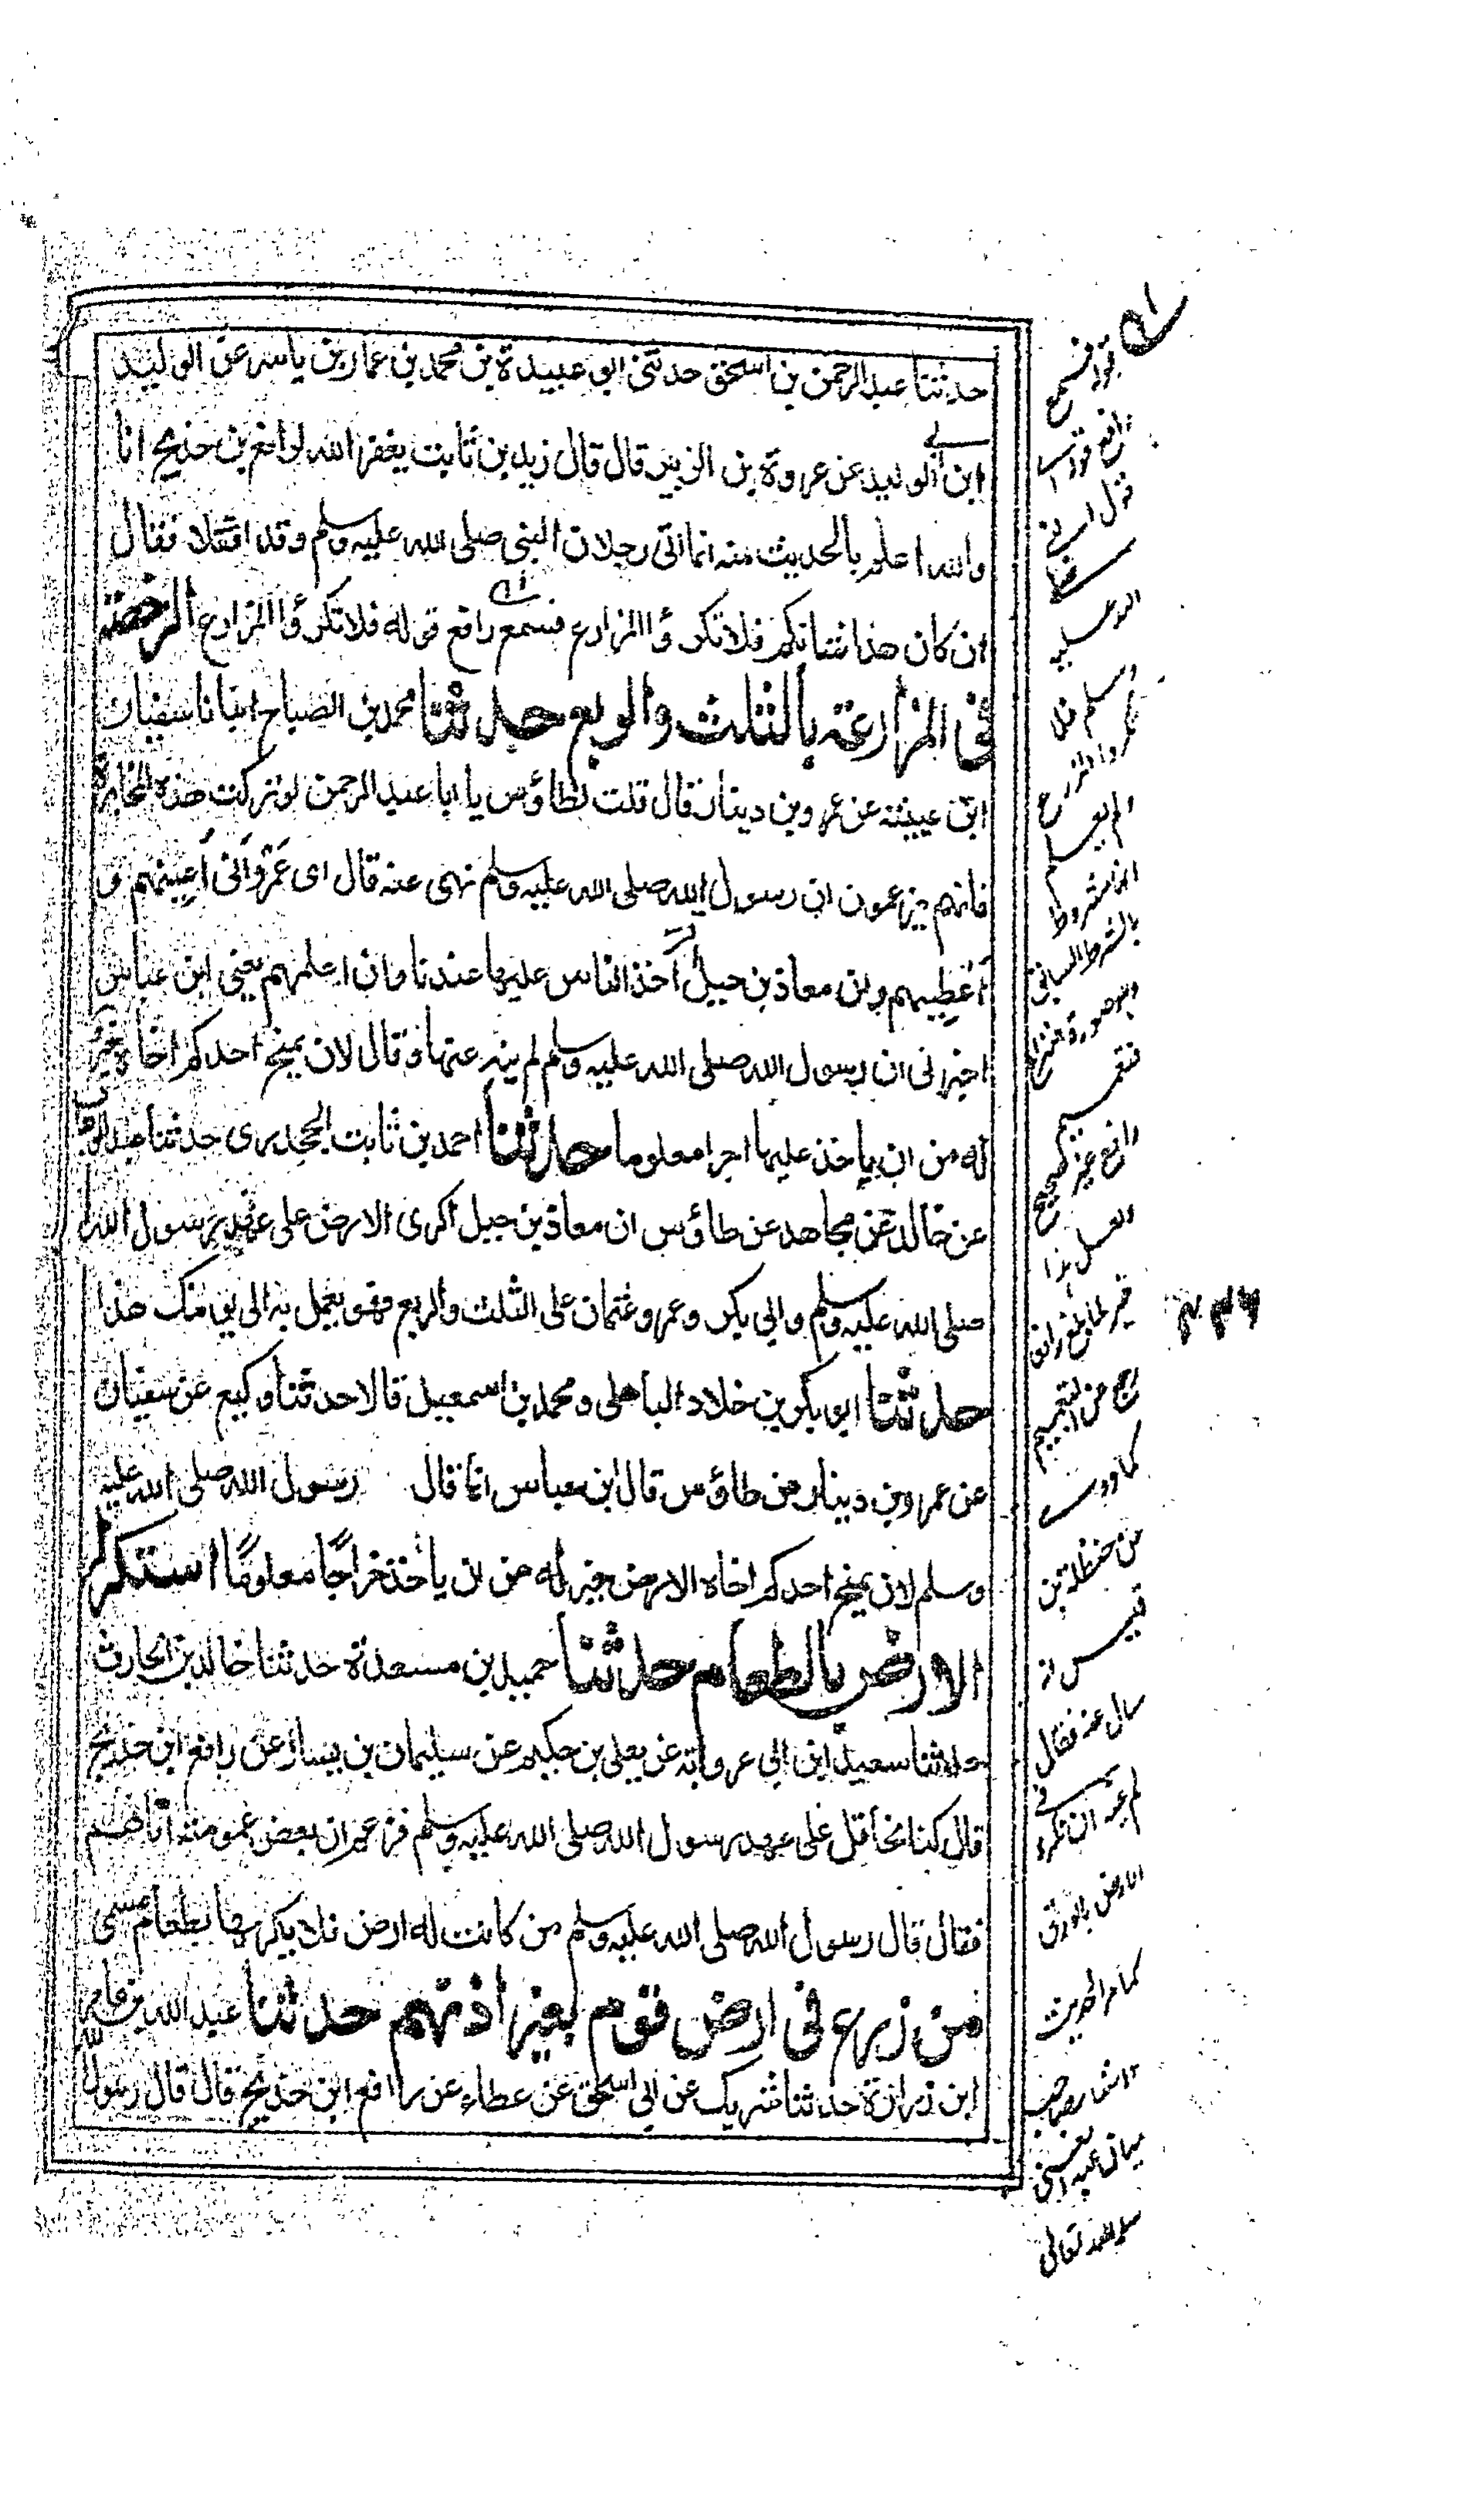 حدثنا عبد الرحمن بن اسحق حدثنى ابو عبيدة بن محمد بن عمار بن ياسر عن الوليد
ابن ابى الوليد عن عروة بن الزبير قال قال زيد بن ثابت يغفر الله لرافع بن خديج انا
والله اعلم بالحديث منه انما اتى رجلان النبى صلى الله عليه وسلم وقد اقتتلا فقال
ان كان هذا شانكم فلا تكروا المزارع فسمع رافع قوله فلا تكروا المزارع الرخصة
فى المزارعة بالثلث والربع حدثنا محمد بن الصباح انبانا سفيان
ابن عيينة عن عمرو بن دينار قال قلت لطاؤس يا ابا عبد الرحمن لو تركت هذه المخابرة
فانهم يزعمون ان رسول الله صلى الله عليه وسلم نهى عنه قال اى عَمْرو انى اُعينهم و
اُعْطِيهم وان معاذ بن جبل اخذ الناس عليها عندنا وان اعلمهم يعنى ابن عباس
اخبرنى ان رسول الله صلى الله عليه وسلم لم ينه عنها وقال لان يمنح احدكم اخاه خير
له من ان ياخذ عليها اجرا معلوما حدثنا احمد بن ثابت الجحدرى حدثنا عبد الوهاب
عن خالد عن مجاهد عن طاؤس ان معاذ بن جبل اكرى الارض على عهد رسول الله
صلى الله عليه وسلم وابى بكر وعمر وعثمان على الثلث والربع فهو يعمل به الى يومك هذا
حدثنا ابو بكر بن خلاد الباهلى ومحمد بن اسمعيل قالا حدثنا وكيع عن سفيان
عن عمرو بن دينار عن طاؤس قال ابن عباس انما قال رسول الله صلى الله عليه
وسلم لان يمنح احدكم اخاه الارض خير له من ان يأخذ خراجًا معلومًا استكراء
الارض بالطعام حدثنا حميد بن مسعدة حدثنا خالد بن الحارث
حدثنا سعيد ابن ابى عروبة عن يعلى بن حكيم عن سليمان بن يسار عن رافع ابن خديج
قال كنا نحاقل على عهد رسول الله صلى الله عليه وسلم فزعم ان بعض عمومته اتاهم
فقال قال رسول الله صلى الله عليه وسلم من كانت له ارض فلا يكريها بطعام مسمى
من زرع فى ارض قوم بغير اذنهم حدثنا عبد الله بن عامر
ابن زرارة حدثنا شريك عن ابى اسحق عن عطاء عن رافع ابن خديج قال قال رسول الله
قوله فسمع
رافع قوله
صلى
الله عليه
وسلم فلا
تكروا المزارع
ولم يعلم
انه مشروط
بالشرط السابق
رافع غير صحيح
كما روى
عن حنظلة بن
قيس
سال عنه فقال
الارض بالورق
كما مر الحديث